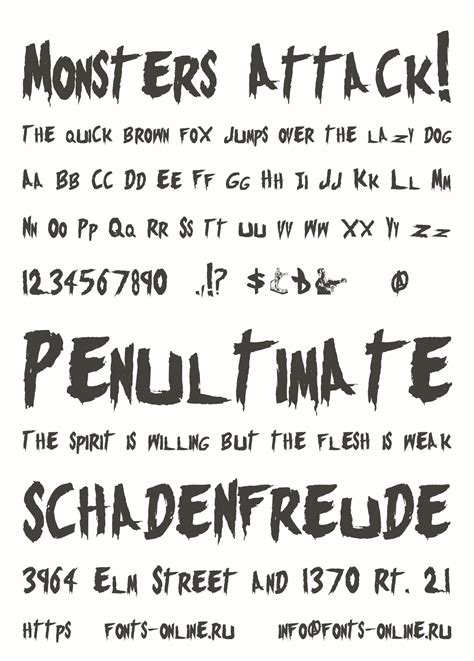 Monsters Attack!
The quick brown fox jumps over the lazy dog
Aa Bb Cc Dd Ee Ff Gg Hh Ii Jj Kk Ll Mm
Nn Oo Pp Qq Rr Ss Tt Uu Vv Ww Xx Yy Zz
1234567890 .,!? $ @
Penultimate
The spirit is willing but the flesh is weak
SCHADENFREUDE
3964 Elm Street and 1370 Rt. 21
https fonts-online.ru info@fonts-online.ru